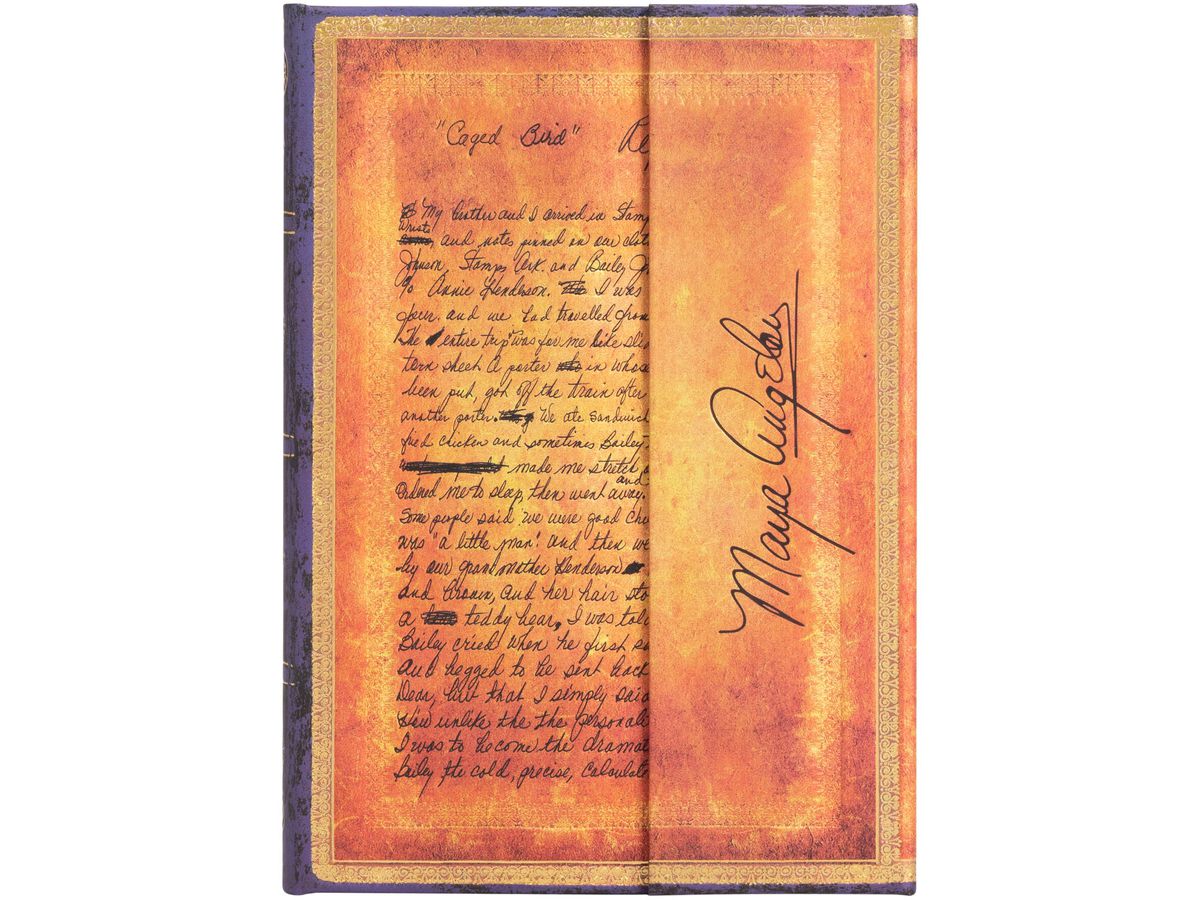 "Caged Bird" Re
My brother and I arrived in Stamp
wrists
and notes pinned on our clot
Johnson, Stamps Ark. and Bailey Jo
c/o Annie Henderson. I was
four. and we had travelled from
The entire trip was for me like sli
torn sheet A porter in whose
been put, got off the train after
another porter. We ate sandwich
fried chicken and sometimes Bailey
made me stretch
and
Ordered me to sleep, then went away.
Some people said we were good chi
was "a little man". and then we
by our grandmother Henderson
and brown, and her hair sto
a teddy bear, I was tol
Bailey cried when he first s
and begged to be sent back
Dear, but that I simply said
How unlike the the personali
I was to become the dramat
Bailey, the cold, precise, calculate
Maya Angelou